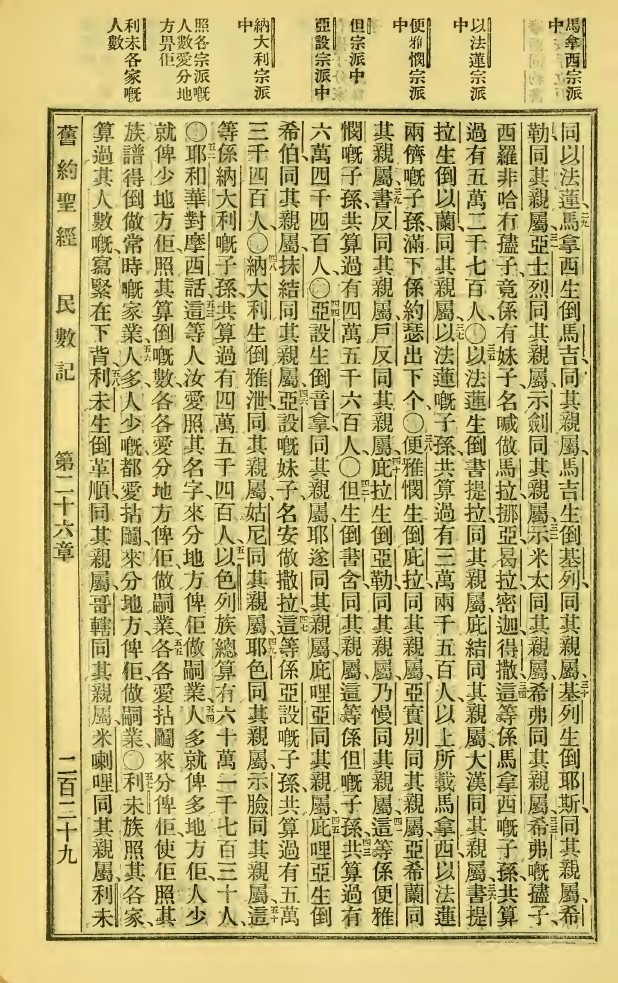 馬拿西宗派
中
以法蓮宗派
中
便雅憫宗派
中
但宗派中
亞設宗派中
納大利宗派
中
照各宗派嘅
人數愛分地
方畀佢
利未各家嘅
人數
同以法蓮、二九馬拿西生倒馬吉同其親屬、馬吉生倒基列同其親屬、三十基列生倒耶斯同其親屬、希
勒同其親屬、三一亞士烈同其親屬、示劍同其親屬、三二示米太同其親屬、希弗同其親屬、三三希弗嘅孻子、
西羅非哈冇孻子、竟係有妹子名喊做馬拉挪亞曷拉密迦得撒、三四這等係馬拿西嘅子孫、共算
過有五萬二千七百人、〇三五以法蓮生倒書提拉同其親屬、庇結同其親屬、大漢同其親屬、三六書提
拉生倒以蘭同其親屬、三七以法蓮嘅子孫共算過有三萬兩千五百人、以上所載馬拿西以法蓮
兩儕嘅子孫、滿下係約瑟出下个、〇三八便雅憫生倒庇拉同其親屬、亞實別同其親屬、亞希蘭同
其親屬、三九書反同其親屬、戶反同其親屬、四十庇拉生倒亞勒同其親屬、乃慢同其親屬、四一這等係便雅
憫嘅子孫、共算過有四萬五千六百人、〇四二但生倒書含同其親屬、這等係但嘅子孫、四三共算過有
六萬四千四百人、〇四四亞設生倒音拿同其親屬、耶遂同其親屬、庇哩亞同其親屬、四五庇哩亞生倒
希伯同其親屬、抹結同其親屬、四六亞設嘅妹子、名安做撒拉、四七這等係亞設嘅子孫、共算過有五萬
三千四百人、〇四八納大利生倒雅泄同其親屬、姑尼同其親屬、四九耶色同其親屬、示臉同其親屬、五十這
等係納大利嘅子孫、共算過有四萬五千四百人、五一以色列族總算有六十萬一千七百三十人、
〇五二耶和華對摩西話、五三這等人汝愛照其名字來分地方俾佢做嗣業、五四人多就俾多地方佢、人少
就俾少地方佢、照其算倒嘅數、各各愛分地方俾佢做嗣業、五五各各愛拈鬮來分俾佢、使佢照其
族譜得倒做常時嘅家業、五六人多人少嘅、都愛拈鬮來分地方俾佢做嗣業、〇五七利未族照其各家、
算過其人數嘅、寫緊在下背、五八利未生倒革順同其親屬、哥轄同其親屬、米喇哩同其親屬、利未
舊約聖經 民數記 第二十六章 二百二十九